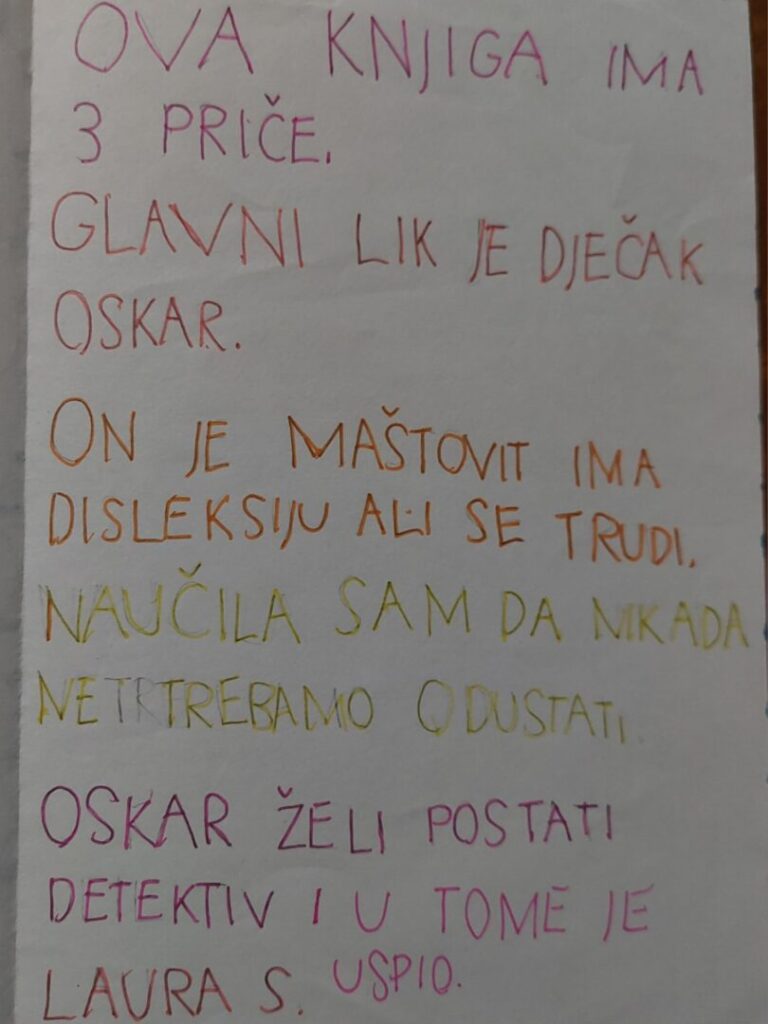 OVA KNJIGA IMA
3 PRIČE.
GLAVNI LIK JE DJEČAK
OSKAR.
ON JE MAŠTOVIT IMA
DISLEKSIJU ALI SE TRUDI.
NAUČILA SAM DA NIKADA
NETRTREBAMO ODUSTATI.
OSKAR ŽELI POSTATI
DETEKTIV I U TOME JE
USPIO.
LAURA S.